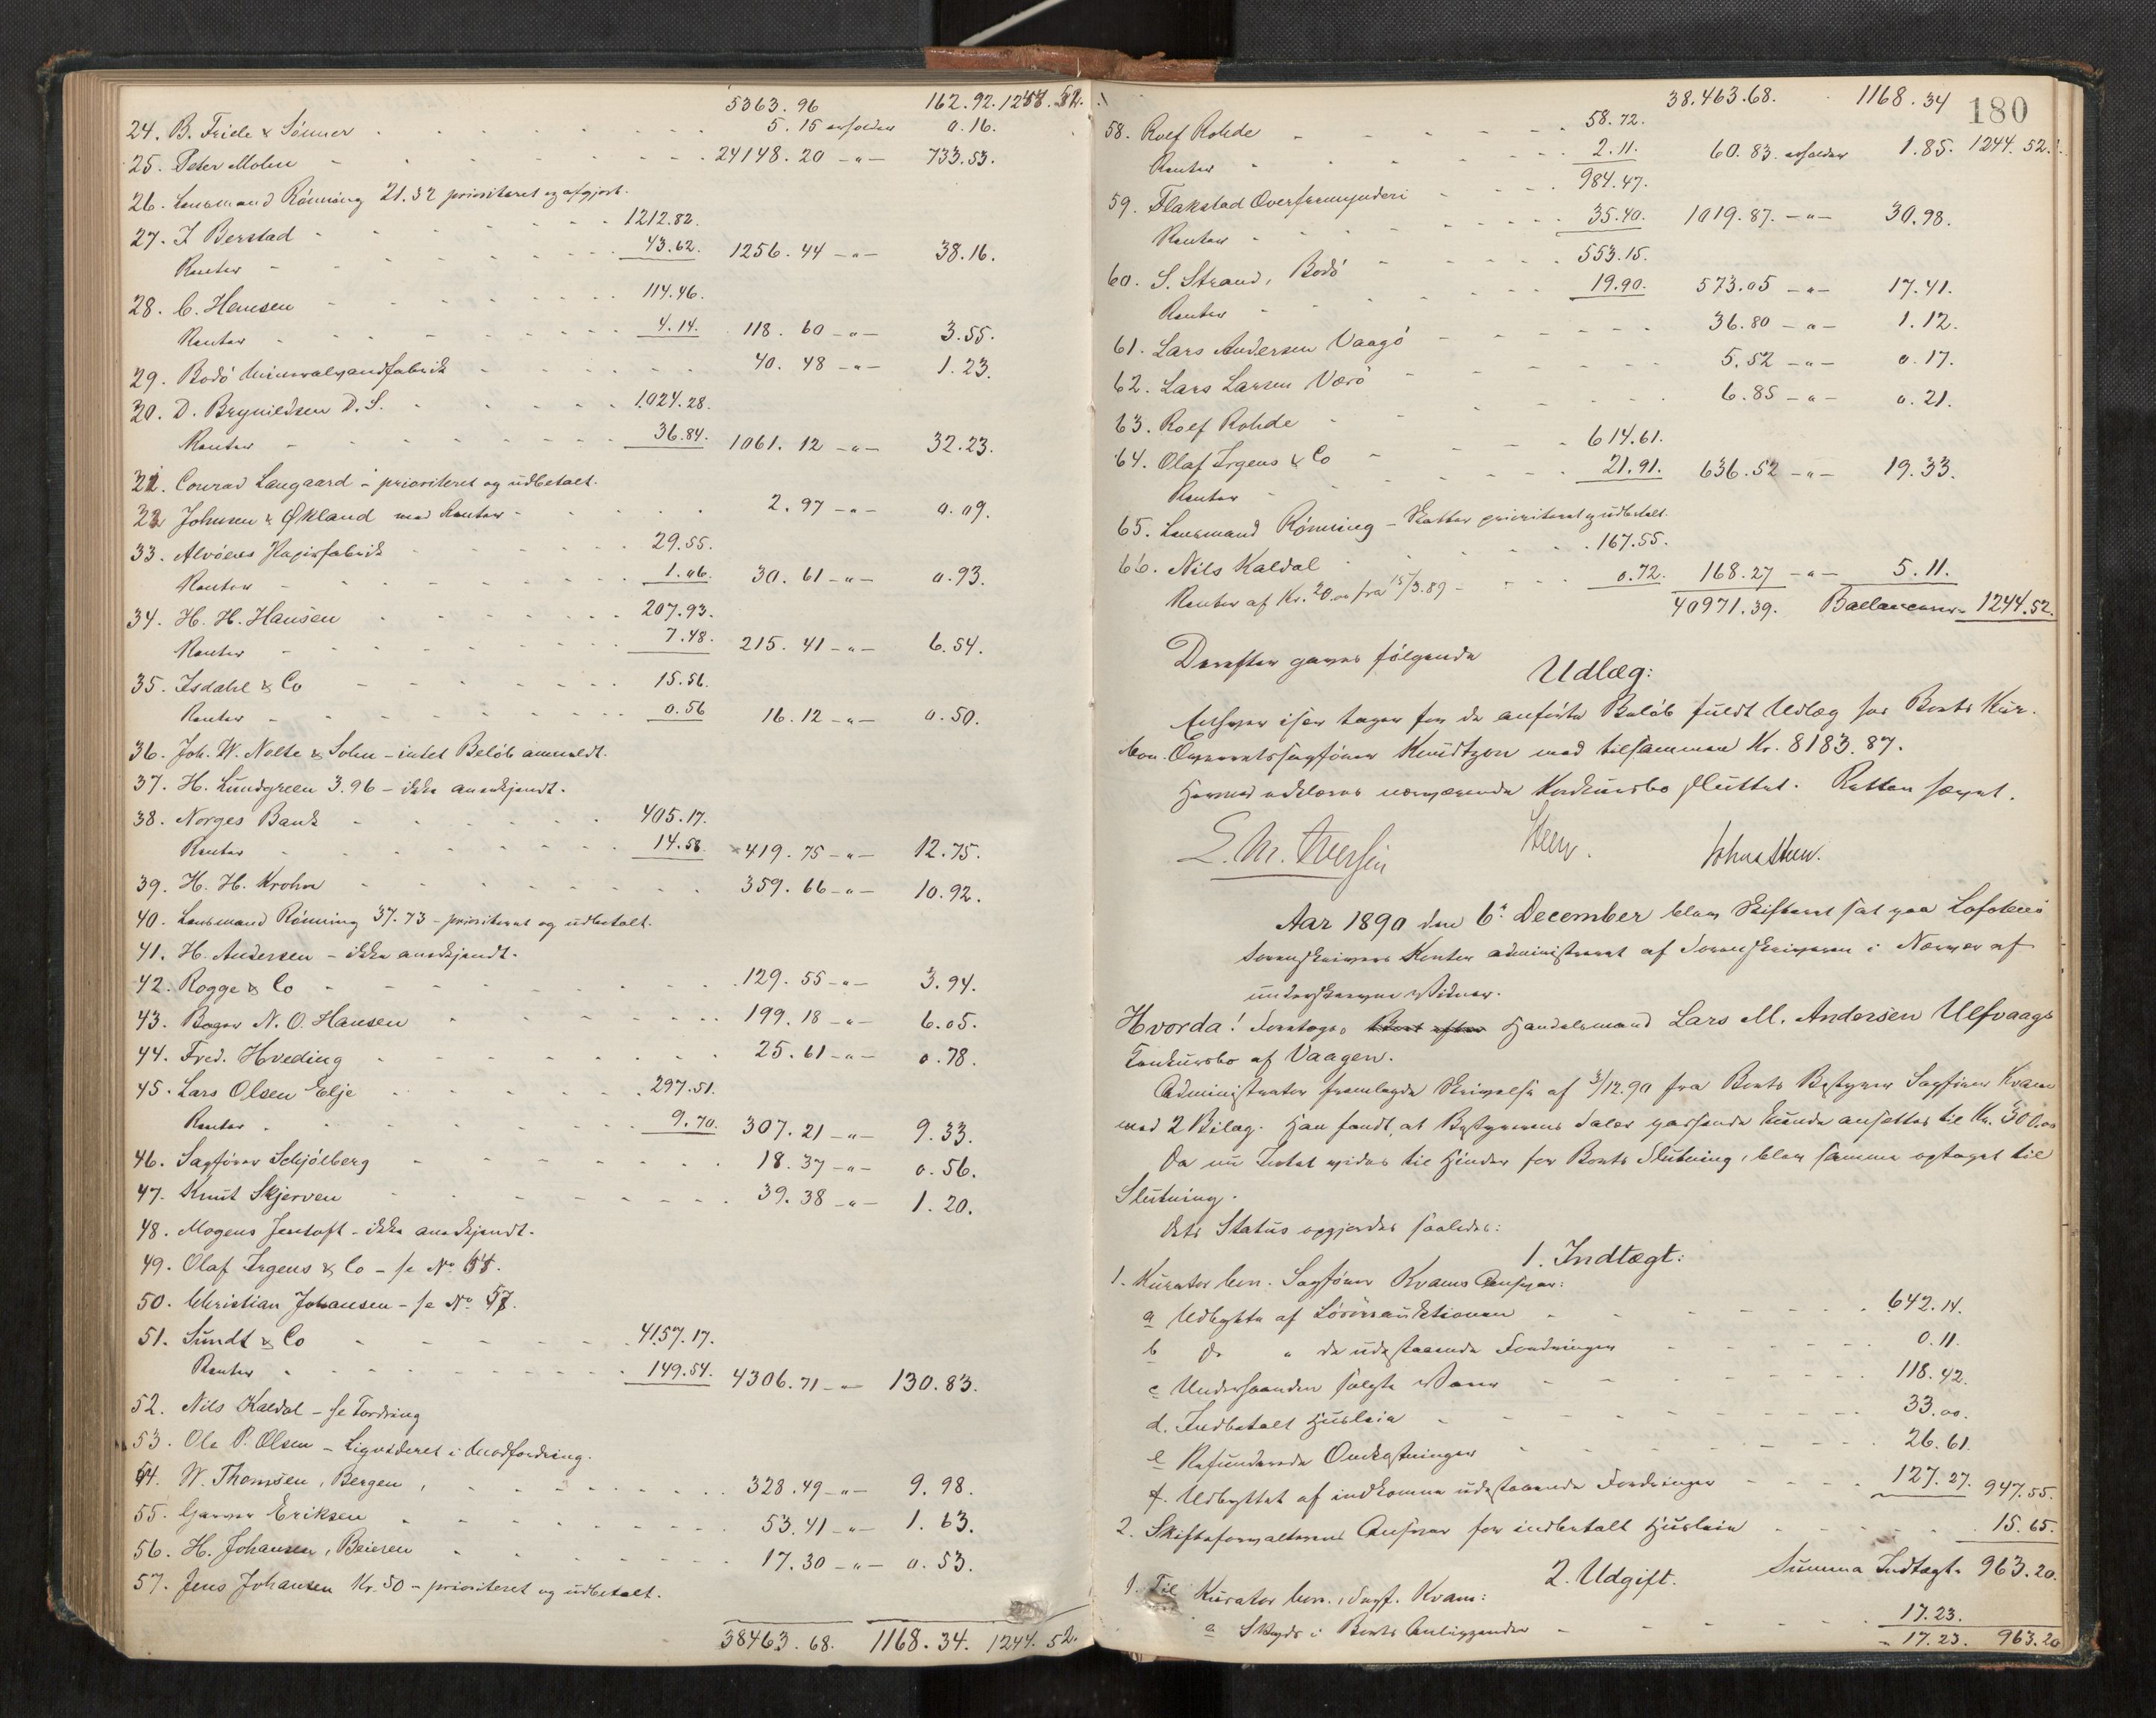 5363.96 162.92. 1244.52.
24. B. Friele & Sönner 5.15 erholder 0.16.
25. Peter Mohn 24148.20 -„- 733.53.
26. Lensmand Rönning 21.32 prioriteret og afgjort.
27. I Berstad 1212.82.
Renter 43.62. 1256.44 -„- 38.16.
28. C. Hansen 114.46.
Renter 4.14. 118.60 -„- 3.55.
29. Bodö Mineralvandfabrik 40.48 -„- 1.23.
30. D. Brynildsen D. S. 1024.28.
Renter 36.84. 1061.12 -„- 32.23.
31. Conrad Langaard - prioriteret og udbetalt.
32 Johnsen & Økland med Renter 2.97 -„- 0.09.
33. Alvöens Papirfabrik 29.55.
Renter 1.06. 30.61 -„- 0.93.
34. H. H. Hansen 207.93.
Renter 7.48. 215.41 -„- 6.54.
35. Isdahl & Co 15.56.
Renter 0.56 16.12 -„- 0.50.
36. Joh. W. Nolte & Sohn - intet Belöb anmeldt.
37. H. Lundgreen 3.96 - ikke anerkjendt.
38. Norges Bank 405.17.
Renter 14.58. 419.75 -„- 12.75.
39. H. H. Krohn 359.66 -„- 10.92.
40. Lensmand Rönning 37.73 - prioriteret og udbetalt.
41. H. Andersen - ikke anerkjendt.
42. Rogge & Co 129.55 -„- 3.94.
43. Bager N. O. Hansen 199.18 -„- 6.05.
44. Fred. Hveding 25.61 -„- 0.78.
45. Lars Olsen Elje 297.51.
Renter 9.70. 307.21 -„- 9.33.
46. Sagförer Schjölberg 18.37 -„- 0.56.
47. Knut Skjerven 39.38 -„- 1.20.
48. Mogens Jentoft - ikke anerkjendt.
49. Olaf Irgens & Co - se No. 64.
50. Christian Johansen - se No. 57.
51. Sundt & Co 4157.17.
Renter 149.54. 4306.71 -„- 130.83.
52. Nils Kaldal - se Fordring
53. Ole P. Olsen - Ligvideret i Modfordring.
54. W. Thomsen, Bergen, 328.49 -„- 9.98.
55. Garver Eriksen 53.41 -„- 1.63.
56. H. Johansen, Beieren 17.30 -„- 0.53.
57. Jens Johansen Kr. 50 - prioriteret og udbetalt.
38463.68. 1168.34. 1244.52.
180
38.463.68. 1168.34
58. Rolf Rohde 58.72. 1244.52.
Renter 2.11. 60.83. erholder 1.85.
59. Flakstad Overformynderi 984.47.
Renter 35.40. 1019.87. -„- 30.98.
60. S. Strand, Bodö 553.15.
Renter 19.90. 573.05 -„- 17.41.
61. Lars Andersen Vaagö 36.80 -„- 1.12.
62. Lars Larsen Værö 5.52 -„- 0.17.
63. Rolf Rohde 6.85 -„- 0.21.
64. Olaf Irgens & Co 614.61.
Renter 21.91. 636.52 -„- 19.33.
65. Lensmand Rönning - Skatter prioriteret og udbetalt.
66. Nils Kaldal 167.55.
Renter af Kr. 20.00 fra 15/3.89 - 0.72. 168.27 -„- 5.11.
40971.39. Ballancerer 1244.52.
Derefter gaves fölgende
Udlæg:
Enhver især tager for de anförte Belöb fuldt Udlæg hos Boets Kur.
bon. Overretssagförer Knudtzon med tilsammen Kr. 8183.87.
Hermed erklæres nærværende Konkursbo sluttet. Retten hævet.
Aar 1890 den 6te December blev Skifteret sat paa Lofotens
Sorenskrivers Kontor administreret af Sorenskriveren i Nærvær af
underskrevne Vidner.
Hvorda! Foretoges Boet efter Handelsmand Lars M. Andersen Ulfvaags
Konkursbo af Vaagen.
Administrator fremlagde Skrivelse af 3/12.90 fra Boets Bestyrer Sagförer Kvam
med 2 Bilag. Han fandt, at Bestyrerens Salær passende kunde ansættes til Kr. 300.00
Da nu Intet vides til Hinder for Boets Slutning, blev samme optaget til
Slutning.
Dets Status opgjordes saaledes:
1. Indtægt:
1. Kurator bon. Sagförer Kvams Ansvar:
a Udbytte af Lösöreauktionen 642.14.
b Do „ de udestaaende Fordringer 0.11.
c Underhaanden solgte Varer 118.42.
d. Indbetalt Husleie 33.00.
e Refunderede Omkostninger 26.61.
f. Udbyttet af indkomne udestaaende Fordringer 127.27. 947.55.
2. Skifteforvalterens Ansvar for indbetalt Husleie 15.65.
Summa Indtægt 963.20.
2. Udgift.
1. Til Kurator bon., Sagf. Kvam:
a Skyds i Boets Anliggender 17.23.
17.23. 963.20